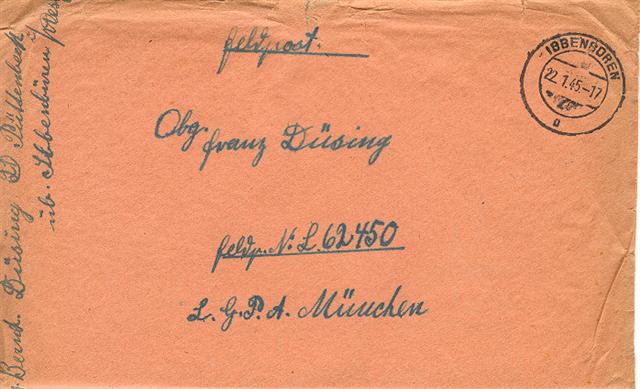 Feldpost.
IBBENBÜREN
22.1.45.-17
a
Obg.
Franz Düsing
Feldp. Nr. L.62450
L.G.P.A. München
Bernh. Düsing
üb. Ibbenbüren